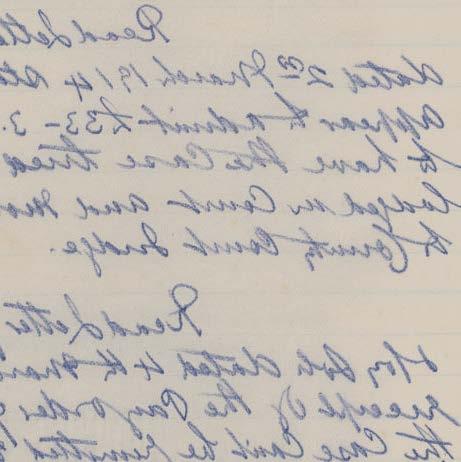 Read Lette
dated 2nd March 1914 st
appear to admit £33-3.
to have the Case tried
lodged in Court and
to County Court Judge.
Read Letter
dated 4th Mar
receipt of the Pay order
the Case Can't be remitted